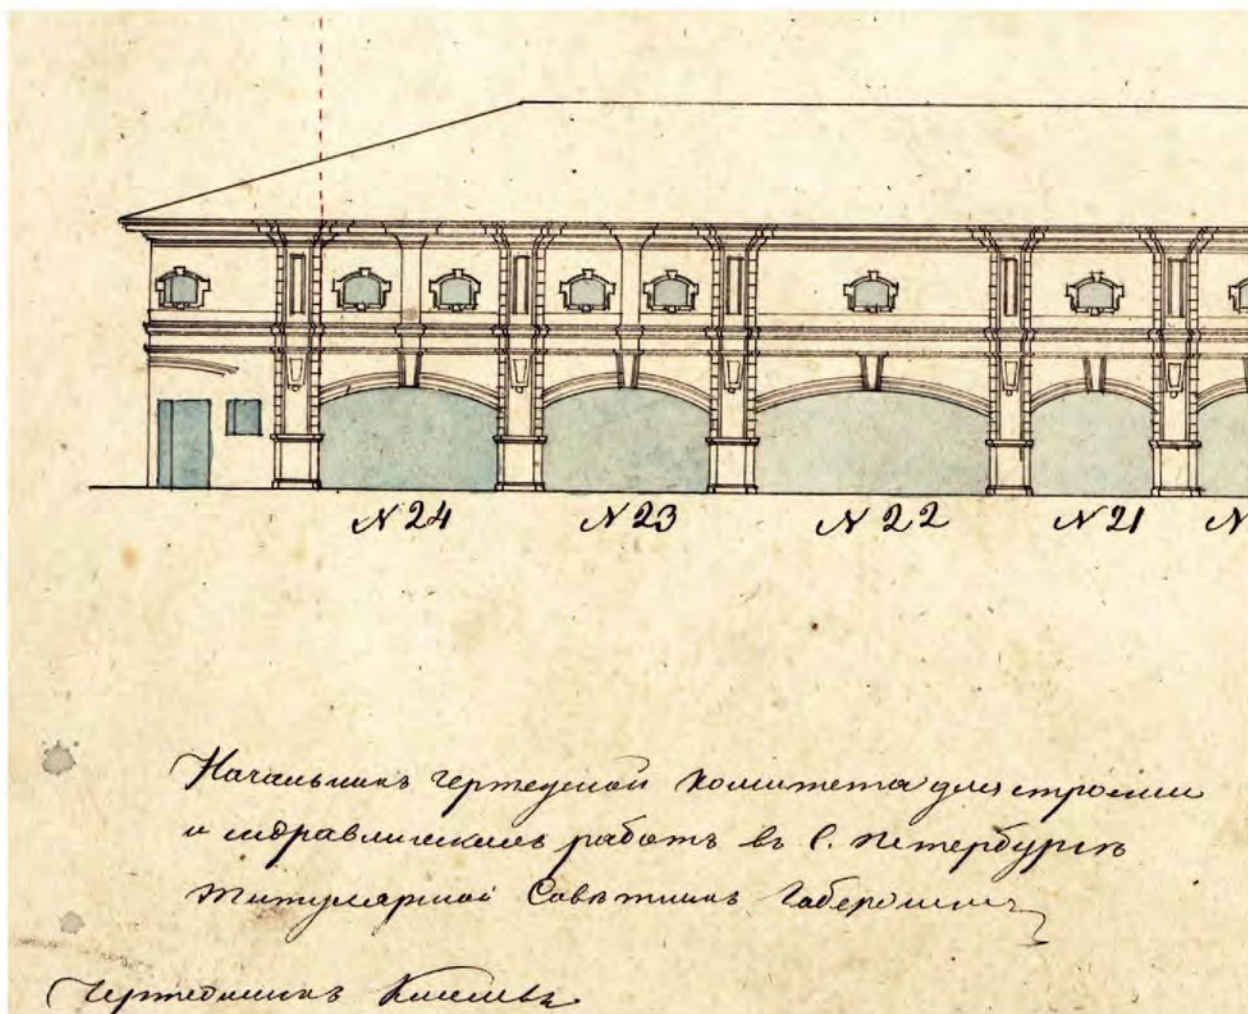 N 24 N 23 N 22 N 21 N
Начальникъ чертежной Комитета для строении
и гидравлическихъ работъ въ С. Петербургѣ
Титулярной Совѣтникъ
Чертежникъ